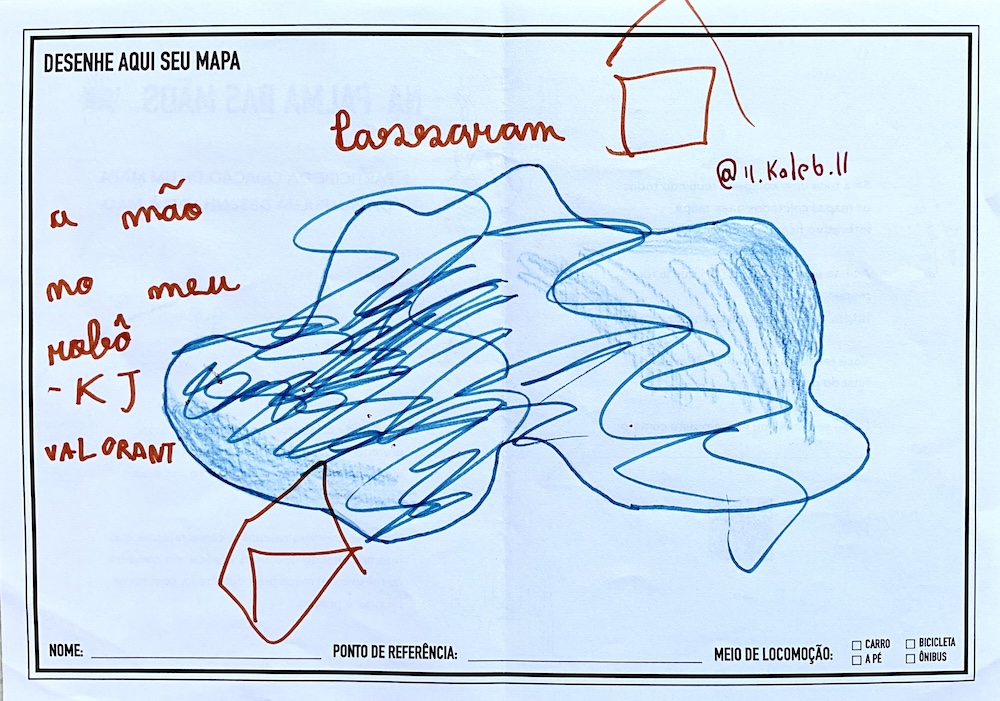 DESENHE AQUI SEU MAPA
Passaram
@11.Kaleb.11
a mão
no meu
robô
- KJ
VALORANT
NOME:
PONTO DE REFERÊNCIA:
MEIO DE LOCOMOÇÃO:
CARRO
BICICLETA
A PÉ
ÔNIBUS